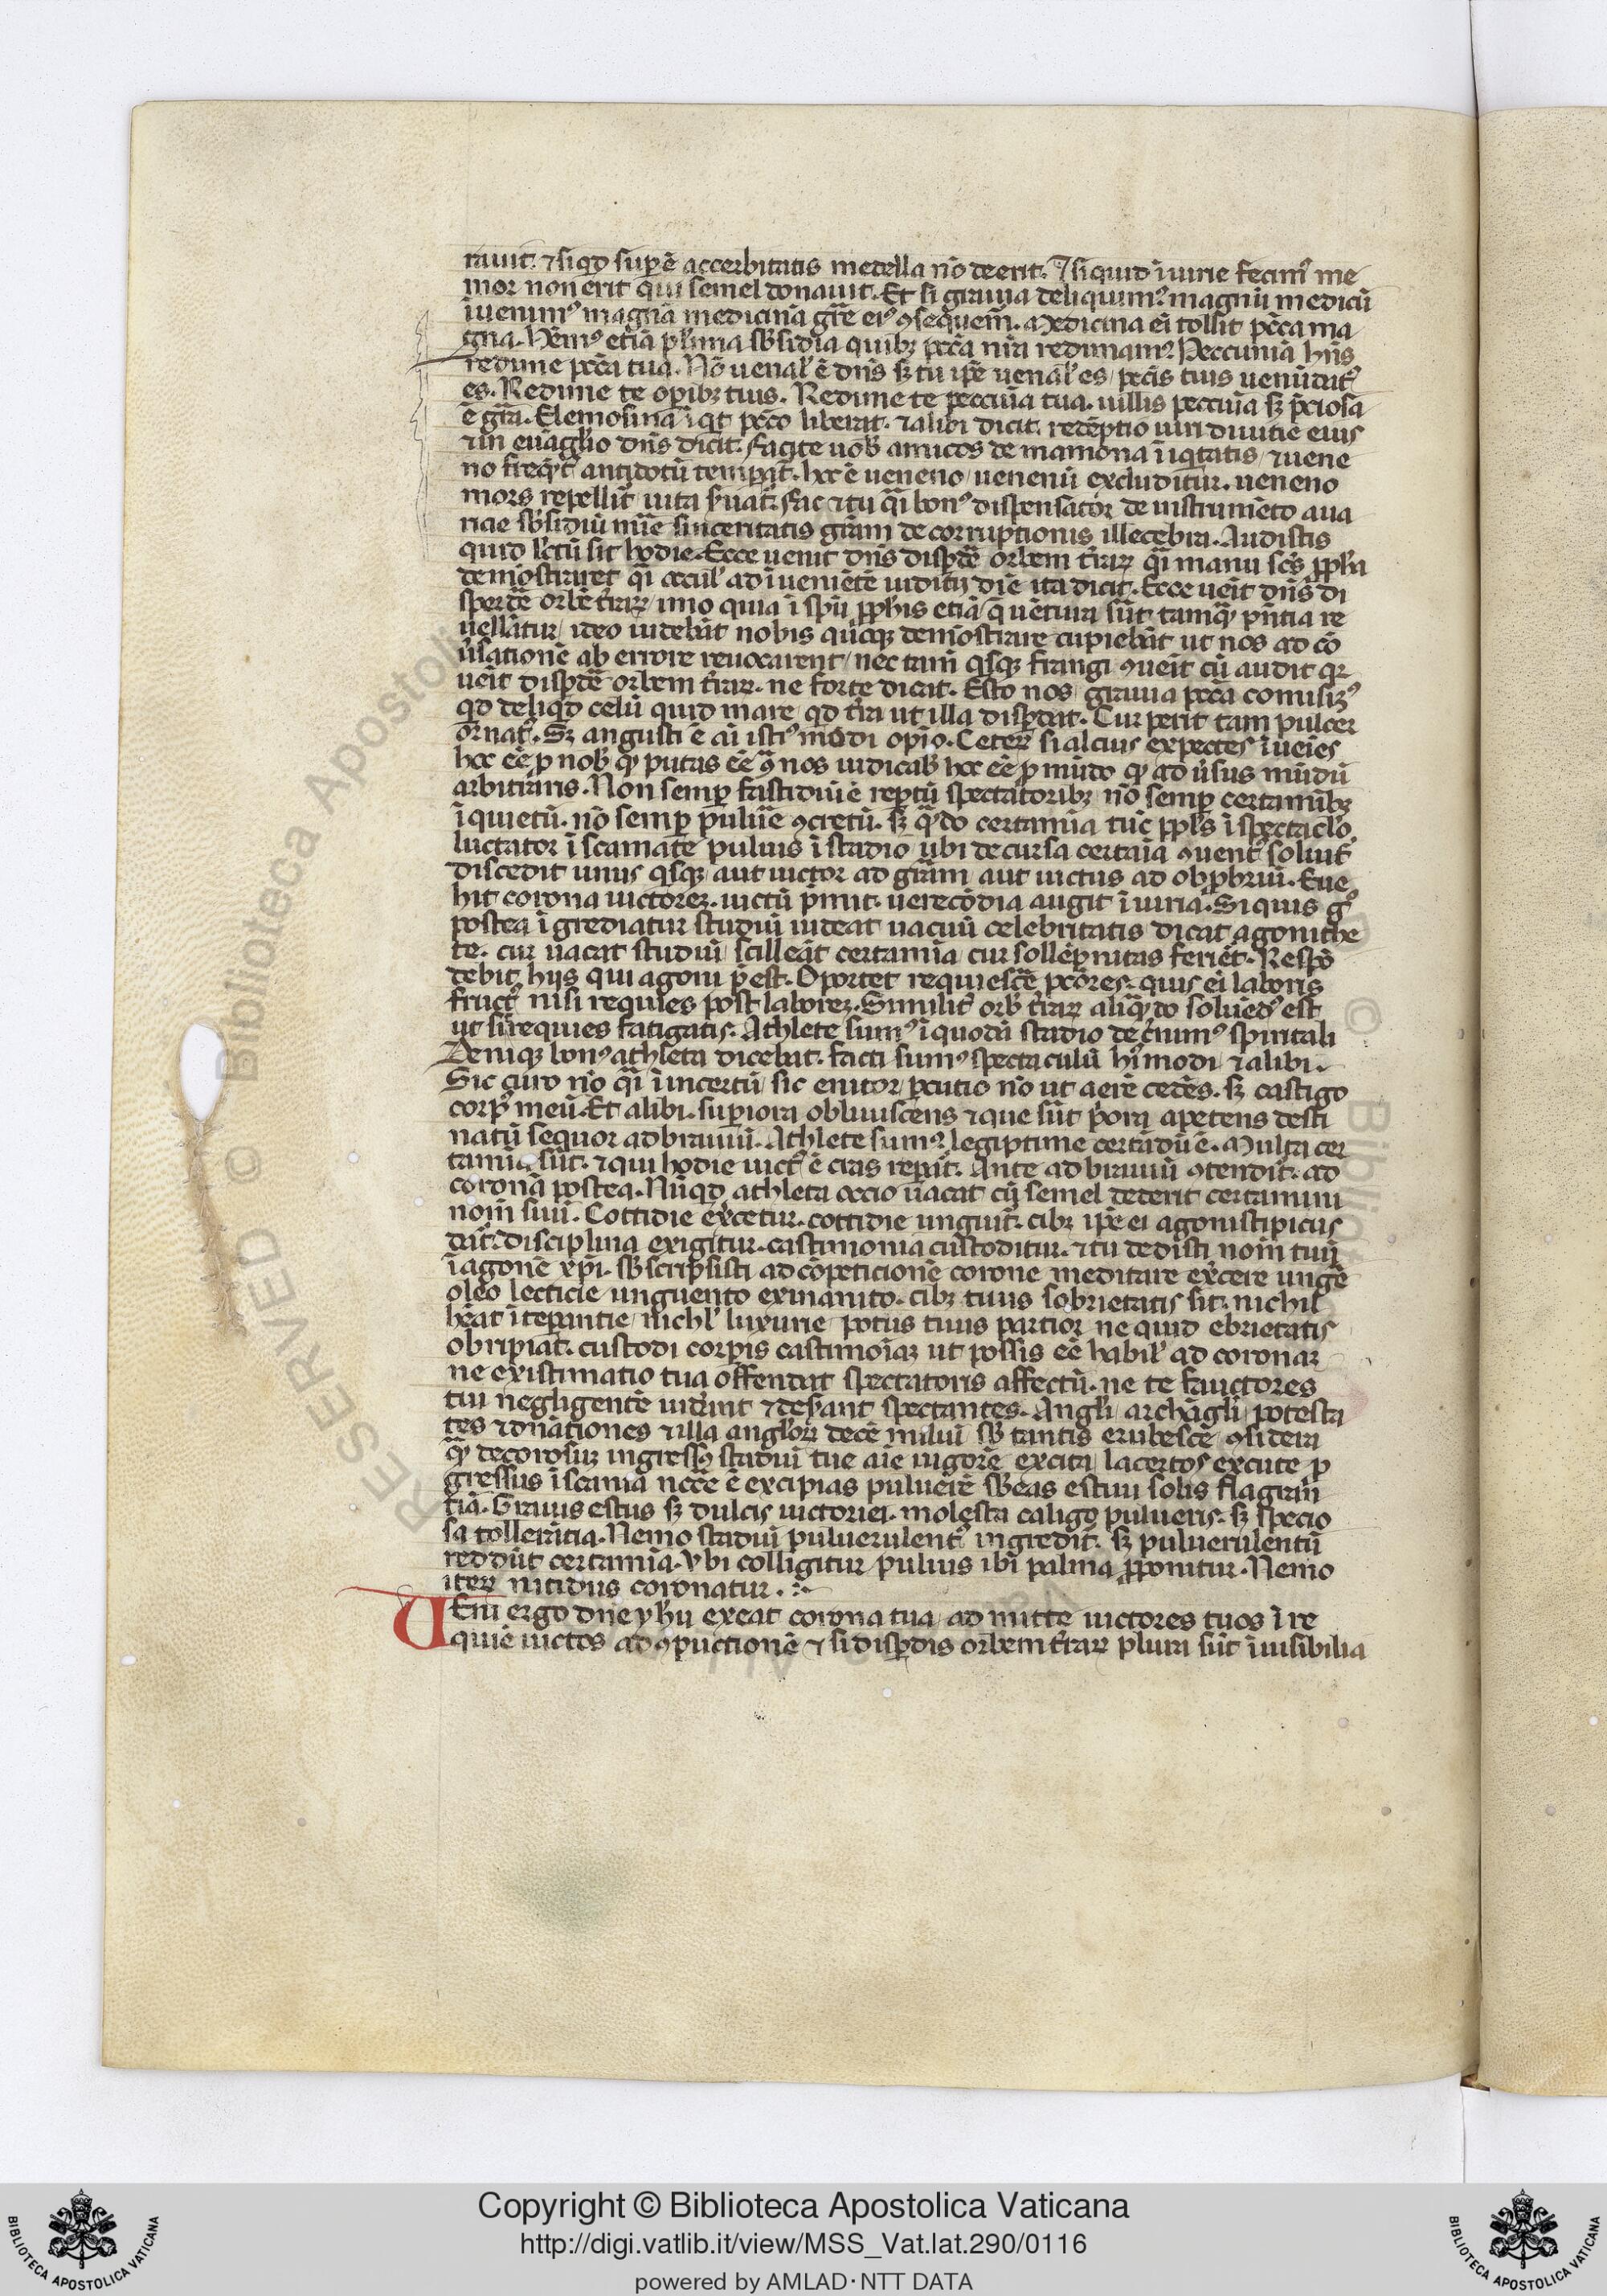 rauit. ⁊ siqd sup ē accerbitatis medella nō deerit. ⁊ siquid iniurie fecimꝰ me
mor non erit qui semel donauit. Et si grauia deliquimꝰ magnū medicū
īuenimꝰ magna medicina gr̄e eiꝰ ꝯsequem̄. Medicina ei tollit pcc̄a ma
gna. Hēmꝰ etiā plīma sb̄sidia quibꝫ pcc̄a nr̄a redimamꝰ. Peccuniā hn̄s
redime pcc̄a tua. Nō uenal' ē dn̄s sꝫ tu ip̄e uenal' es, pcc̄is tuis uenūdatꝰ
es. Redime te opibꝫ tuis. Redime te peccuīa tua. uillis peccuīa sꝫ p̄ciosa
ē gr̄a. Elemosina iqt pcc̄o liberat. ⁊ alibi dicit. redēptio uiri diuitie eius
⁊ in euāglio dn̄s dicit. facite uob̄ amicos de mamona īiqtatis, ⁊ uene
no freqt̄ antidotū temp̄at. hoc ē ueneno, uenenū excluditur. ueneno
mors repellit̄ uita s̄uat̄. Fac ⁊ tu q̄i bonꝰ dispensator de instrumēto aua
riae sb̄sidiū mīe sinceritatis grām de corruptionis illecebra. Audistis
quid lc̄tū sit hodie. Ecce uenit dn̄s disp̄dē orbem t̄rarꝫ q̄i manu scā pph̄a
demōstraret q̄i ocul' adīueniētē iuditij diē ita dicit. Ecce ueīt dn̄s di
sperdē orbē t̄rarꝫ, imo quia ī spū pph̄is etiā q̄ uētura sūt tamqꝫ pn̄tia re
uellātur, ideo uidebāt nobis qūcqꝫ demōstrare cupiebāt ut nos ad cō
ūsationē ab errore reuocarent, nec tam̄ qsqꝫ frangi ꝯueīt cū audit qr
ueīt disp̄dē orbem t̄rarꝫ. ne forte dicat. Esto nos grauia pcc̄a comisimꝰ
qd deliqd celū quid mare, qd t̄ra ut illa disp̄dat. Cur perit tam pulcer
ornatꝰ. Sꝫ angusti ē aī istiꝰmodi opīo. Ceterꝫ si alcius expectes īueīes
hoc eē p nob̄ qꝫ putas eē ꝯ nos iudicab̄ hoc eē p mūdo qꝫ aduersus mūdū
arbitraris. Non semp fastidiū ē reptū spectatoribꝫ, nō semp certamībꝫ
īquietū. nō semp puluē ꝯcretū. sꝫ qn̄do certamīa tūc ppl's ī spectacl'o,
luctator ī scamate puluis ī stadio, ubi decursa certaīa ꝯuentꝰ soluit̄
discedit unus qsqꝫ aut uictor ad grām aut uictus ad obp̄briū. Eue
hit corona uictoreꝫ. uictū p̄mit. uerecōdia augit iniuriā. Si quis gꝰ
postea īgrediatur studiū uideat uacuū celebritatis dicat agonithe
te. cur uacat studiū, scilleāt certamīa, cur sollēpnitas feriēt. Respō
debit hijs qui agoni p̄est. Oportet requiescē pcōres. quis ei laboris
fructꝰ nisi requies post laboreꝫ. Similit̄ orb̄ t̄rarꝫ aliqn̄do soluēdꝰ est
ut s̄i requies fatigatis. Athlete sumꝰ ī quodā stadio dec̄nimꝰ spiritali
Deniqꝫ bonꝰ athleta dicebat. facti sumꝰ spectaculū hꝰmodi, ⁊ alibi.
Sic curo nō q̄i īincertū, sic enitor, pcutio nō ut aerē cedēs. sꝫ castigo
corpꝰ meū. Et alibi. superiora obliuiscens ⁊ que sūt p̄ora apetens desti
natū sequor ad brauiū. Athlete sumꝰ. legiptime certādū ē. Multa cer
tamīa sūt. ⁊ qui hodie uictꝰ ē cras repar̄. Ante ad brauiū ꝯtendit. ad
coronā postea. Nūqd athleta occio uacat cū semel dederit certamini
nom̄ suū. Cottidie ex̄cetur. cottidie unguit̄. cibꝫ ip̄e ei agonistipicus
dat̄. disciplina exigitur. castimonia custoditur. ⁊ tu dedisti nom̄ tuū
ī agonē xp̄i. sb̄scripsisti ad cōpeticionē corone meditare ex̄cere ungē
oleo lecticie, unguento exinanito. cibꝫ tuus sobrietatis sit. nichil
hēat ītepantie, nichl' luxurie, potus tuus partior ne quid ebrietatis
obripiat. custodi corpis castimoīaꝫ ut possis eē habil' ad coronaꝫ
ne existimatio tua offendat spectatoris affectū. ne te fauctores
tui negligentē uiderint ⁊ des̄ant spectantes. Angl'i, archāgl'i, potesta
tes ⁊ dn̄ationes ⁊ illa angl'orꝫ decē miliū sb̄ tantis erubesce, ꝯsidera
qꝫ decorosuꝫ ingressꝰ stadiū tue aīe uigorē excita, lacertos excute p
gressus ī scama nec̄e ē excipias puluerē sb̄eas estiui solis flagran
tiā. Grauis estus sꝫ dulcis uictoriei. molesta caligo pulueris. sꝫ specio
sa tollerātia. Nemo stadiū puluerulentꝰ ingredit̄. sꝫ puluerulentū
reddūt certamīa. Vbi colligitur puluis ibi palma pponitur. Nemo
iterꝫ nitidus coronatur.
Ueni ergo dn̄e yh̄u exeat corona tua, admitte uictores tuos ī re
quiē uictos ad ꝯpuctionē ⁊ si disp̄dis orbem t̄rarꝫ plura sūt īuisibilia
RESERVED © Biblioteca Apostolica Vaticana
Copyright © Biblioteca Apostolica Vaticana
http://digi.vatlib.it/view/MSS_Vat.lat.290/0116
powered by AMLAD·NTT DATA
BIBLIOTECA APOSTOLICA VATICANA
BIBLIOTECA APOSTOLICA VATICANA